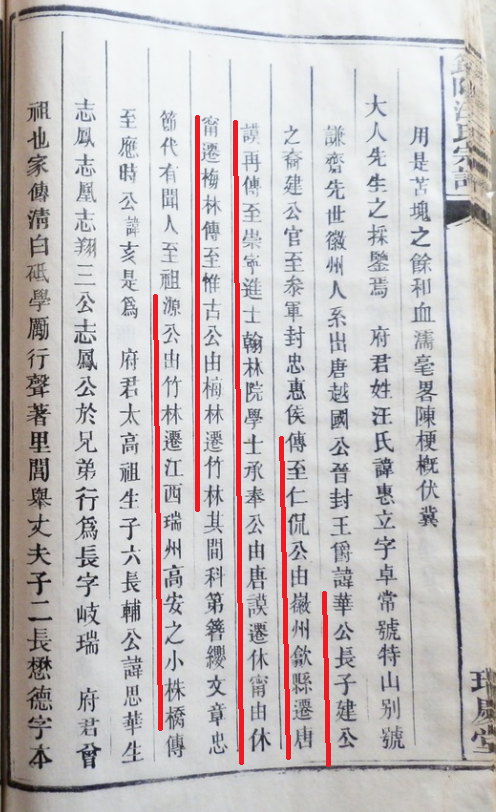 汪氏宗譜
堂
用是苫塊之餘和血濡毫畧陳梗槪伏冀
大人先生之採鑒焉 府君姓汪氏諱惠立字卓常號特山別號
謙齋先世徽州人系出唐越國公晉封王爵諱華公長子建公
之裔建公官至叅軍封忠惠侯傳至仁侃公由徽州歙縣遷唐
謨再傳至崇寧進士翰林院學士承奉公由唐謨遷休甯由休
甯遷梅林傳至惟古公由楠林遷竹林其間科第簪纓文章忠
節代有聞人至祖源公由竹林遷江西瑞州高安之小株橋傳
至應時公諱亥是爲 府君太高祖生子六長輔公諱思華生
志鳳志凰志翔三公志鳳公於兄弟行爲長字岐瑞 府君曾
祖也家傳淸白砥學勵行聲著里閭舉丈夫子二長懋德字本